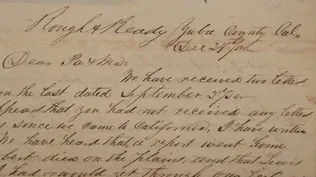 Rough & Ready Yuba County Cal.
Dear Pa & Ma:
We have received two letters
the last dated September
that you had not received any letters
since we came to California, I have written
We have heard that a report went home
died on the plains, and that Lewis
had